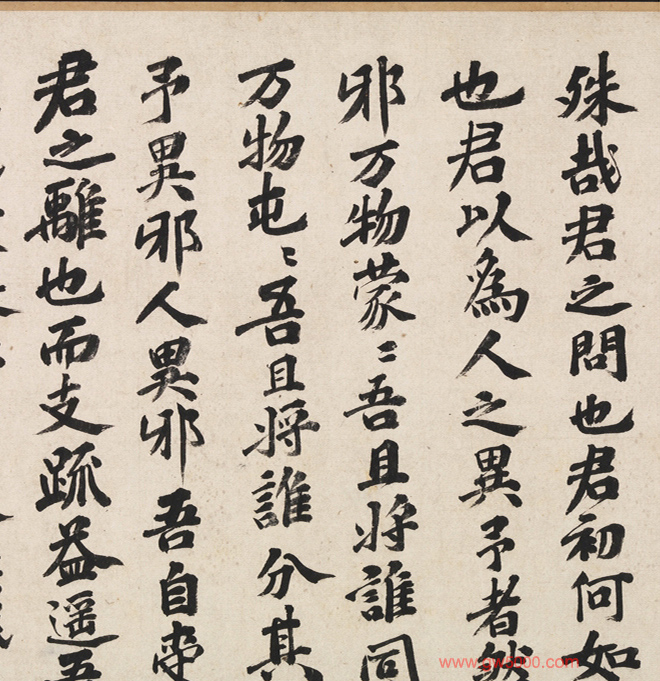 殊哉君之問也君初何如
也君以為人之異予者然
邪万物蒙〻吾且将誰同
万物屯〻吾且将誰分其
予異邪人異邪吾自
君之離也而支疏益遥吾
www.gw8000.com